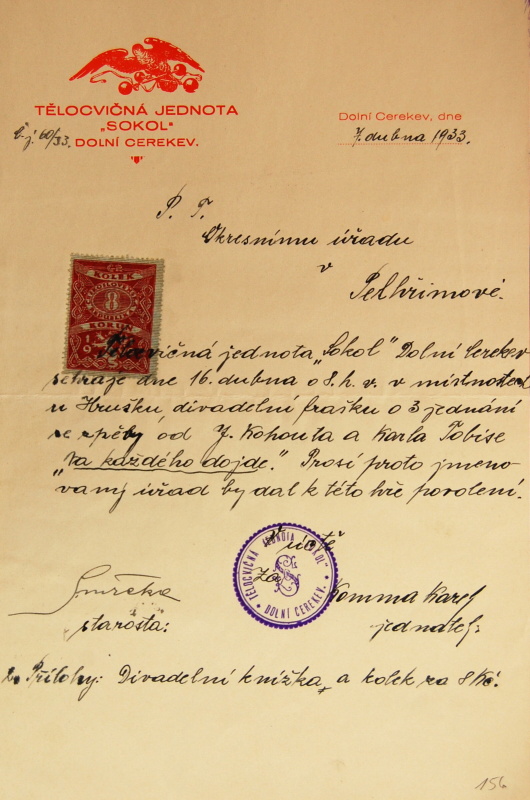 TĚLOCVIČNÁ JEDNOTA
„SOKOL"
DOLNÍ CEREKEV.
Č. j. 60/33.
Dolní Cerekev, dne
7. dubna 1933.
P. T.
Okresnímu úřadu
v
Pelhřimově.
KOLEK
8
KORUN
Tělocvičná jednota „Sokol" Dolní Cerekev
sehraje dne 16. dubna o 8. h. v. v místnostech
u Hrušků, divadelní frašku o 3 jednání
se zpěvy od J. Kohouta a Karla Tobise
„Na každého dojde." Prosí proto jmeno-
vaný úřad by dal k této hře povolení.
V úctě
Za
TĚLOCVIČNÁ JEDNOTA „SOKOL"
DOLNÍ CEREKEV.
Smrčka
Komma Karel
starosta:
jednatel:
2. Přílohy: Divadelní knížka, a kolek za 8 Kč.
156